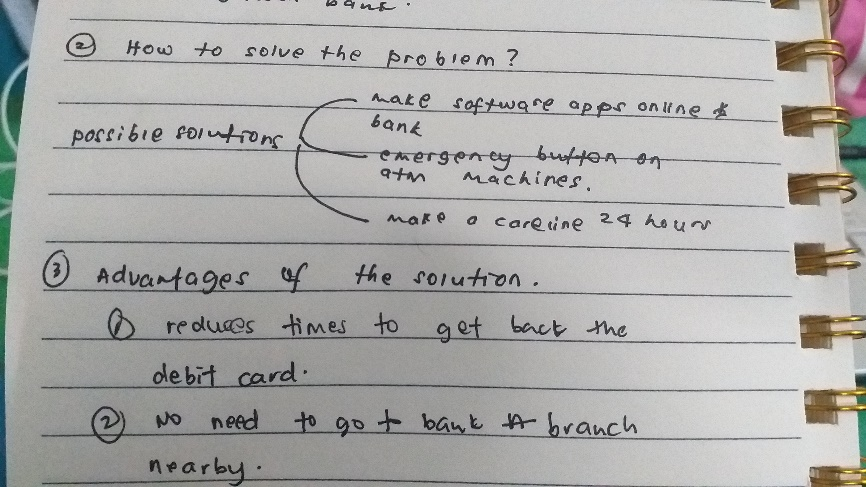 bank.
② How to solve the problem?
make software apps online &
bank
possible solutions
emergency button on
atm machines.
make a careline 24 hours
③ Advantages of the solution.
① reduces times to get back the
debit card.
② No need to go t bank branch
nearby.